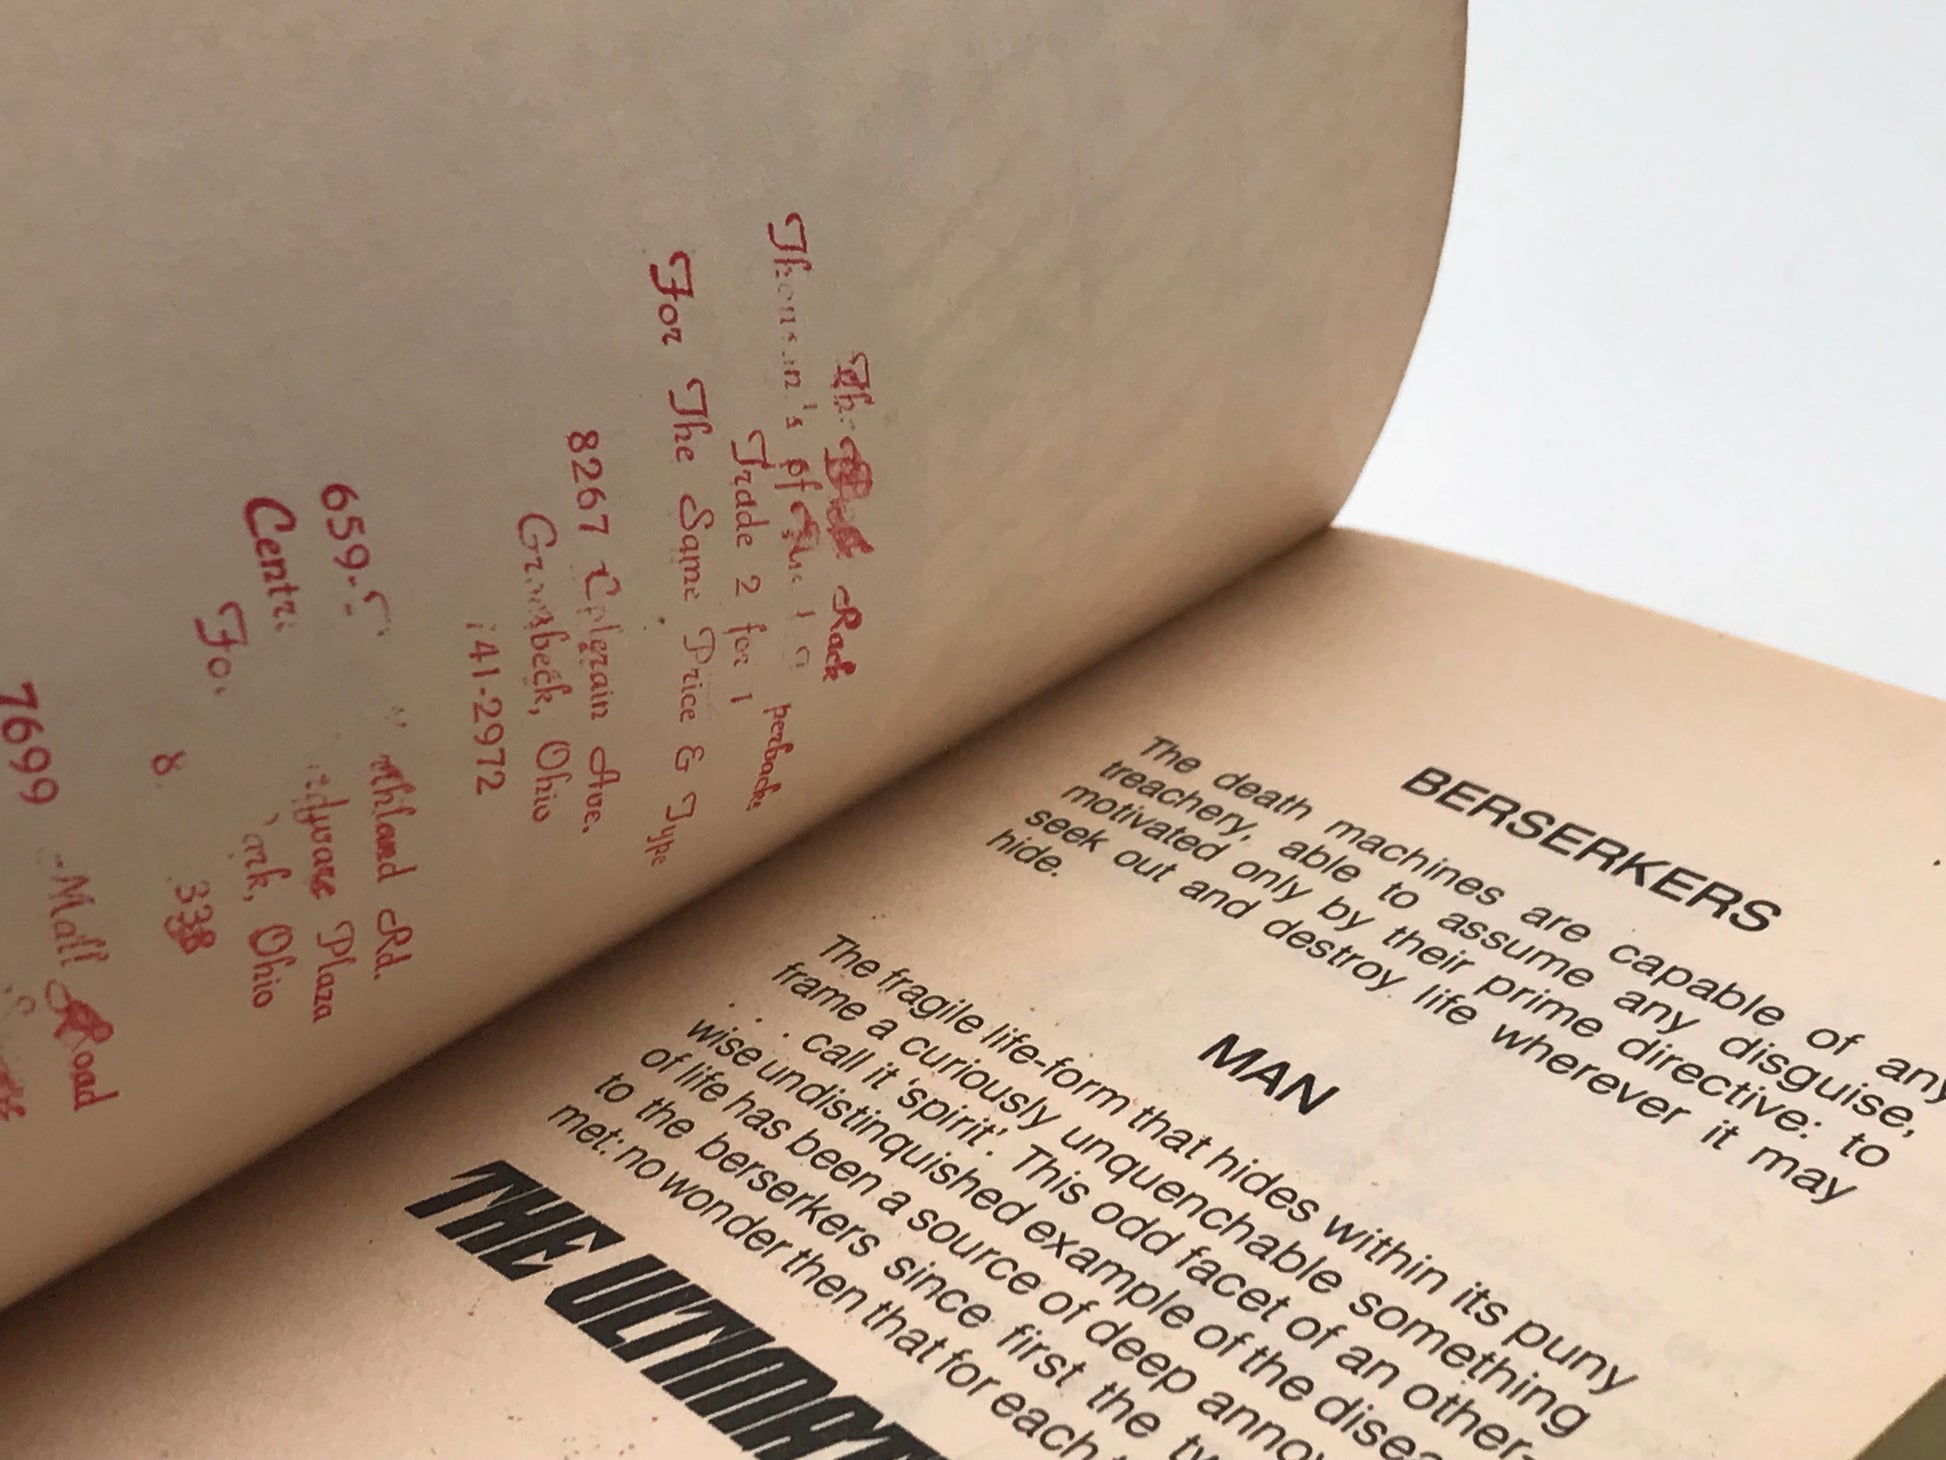 The Rack
perbacks
Trade 2 for 1
For The Same Price & Type
8267 Colerain Ave.
Groesbeck, Ohio
741-2972
Ashland Rd.
659-5
Plaza
Ohio
8
338
7699
Mall Road
BERSERKERS
The death machines are capable of any
treachery, able to assume any disguise,
motivated only by their prime directive: to
seek out and destroy life wherever it may
hide.
MAN
The fragile life-form that hides within its puny
frame a curiously unquenchable something
. . . call it 'spirit'. This odd facet of an other-
wise undistinquished example of the disea
of life has been a source of deep annoy
to the berserkers since first the tw
met: no wonder then that for each
THE ULTIMAT